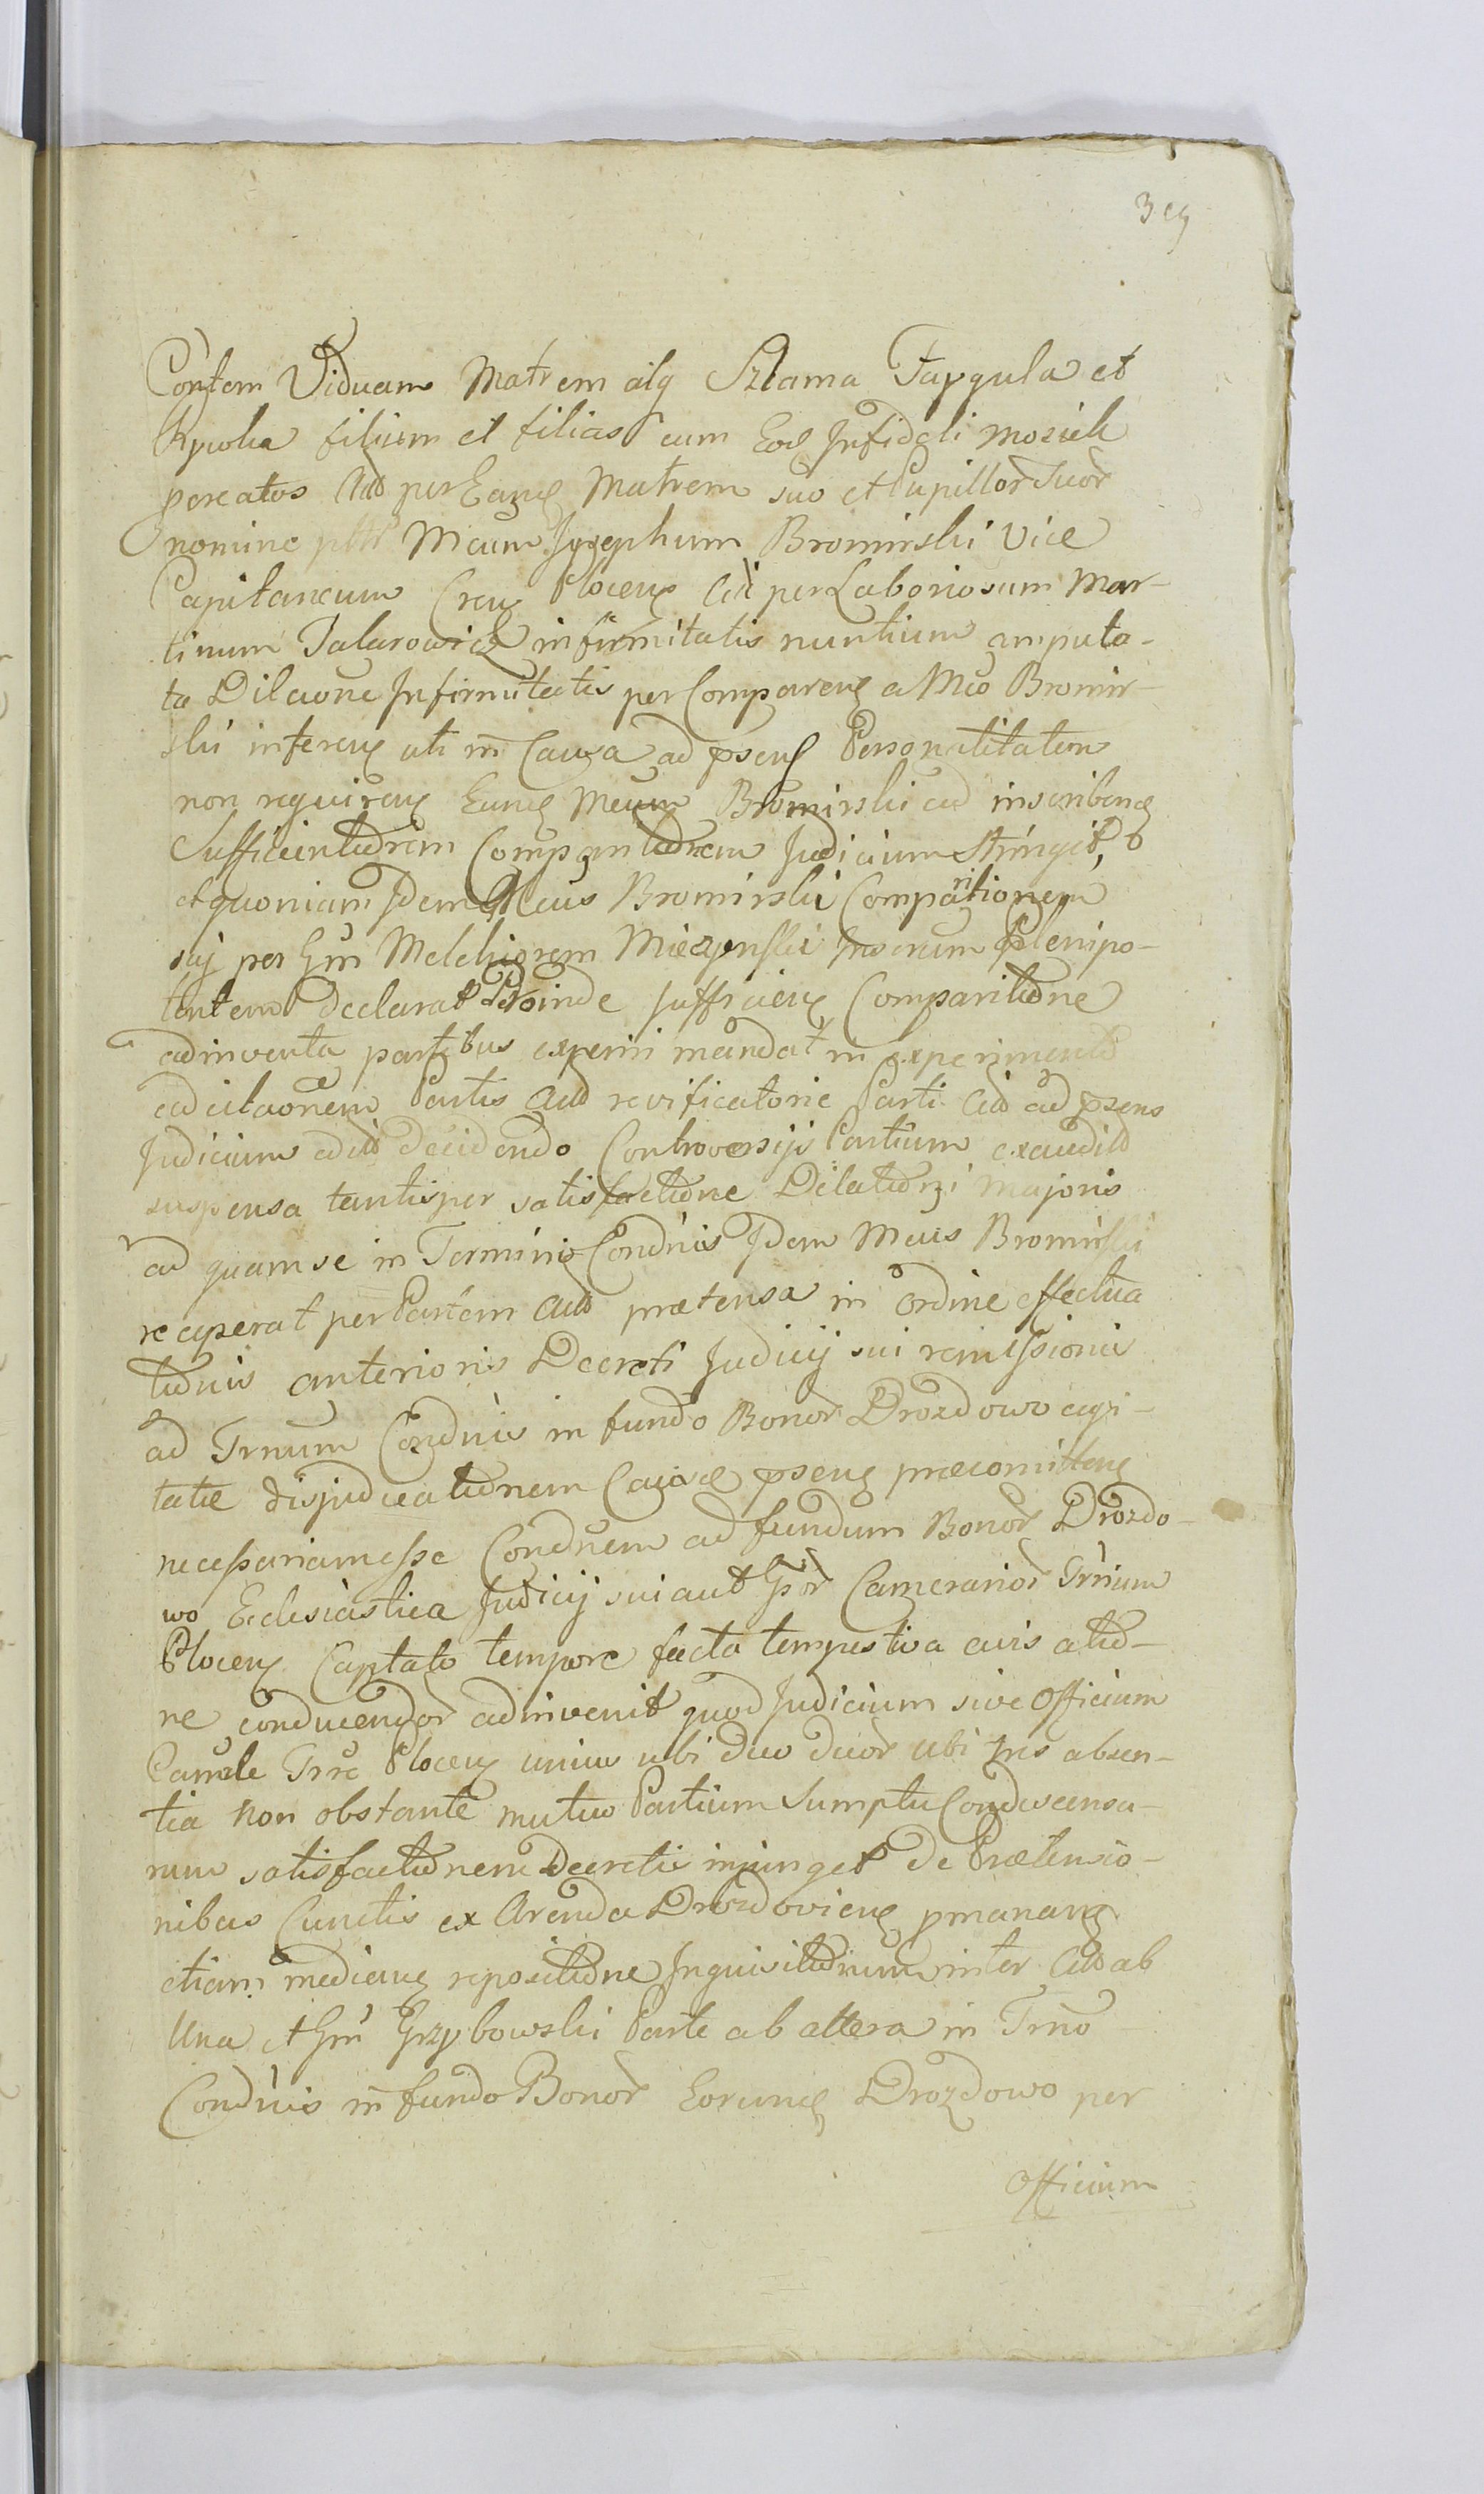 Consortem Viduam Matrem atq Szlama Faygula et
Rywka filium et filias cum Eod Infideli Mosiek
pcreatos Actō per Eandē Matrem suo et Pupillor̄ Suor̄
nomine Mcum Josephum Bromirski Vice
Capitaneum Creń Płoceń Citt̄ per Laboriosum Mar-
tinum infirmitatis nuntium amputa-
ta Dilaōne Infirmitatis per Compareń a Mcō Bromir-
ski infereń uti in Causa ad pseń Personalitatem
non requireń Eundē Mcum Bromirski ad inscribeń
Sufficientiōrem Judicium Stringit,
et quoniam Idem Mcus Bromirski Comparitionem
sui per Gm Melchiorem Plenipo-
tentem declarat Proinde sufficień Comparitiōne
adinventa partibus experiri mandat in experimentō
ad citaōnem Partis Actō Parti Cittō ad psens
Judicium decidendo Controversijs Partium exauditō
suspensa tantisper satisfactiōne Dilatiōni Majoris
ad quam se in Terminis Condn̄is Idem Mcus Bromirski
reciperat per Partem Actō prætensa in ordine effectua
tiōnis anterioris Decreti Judicij sui remissionis
ad Trnum Condn̄is in fundo Bonor̄ Drozdowo agi-
tatæ disjudicatiōnem Causæ pseń præcomitteń
necessariam esse Condn̄em ad fundum Bonor̄ Drozdo-
wo Ecclesiastica Judicij sui aut Gsor̄ Camerarior̄ Trrium
Płoceń Captato tempore facta tempestiva avisatiō-
ne conduceńdor̄ adinvenit quod Judicium sive Officium
Camrale Trræ Płoceń unius ubi duo duor̄ ubi tres absen-
tia non obstante mutuo Partium Sumptu Condescensu-
rum satisfactiōnem Decretis injunget De Prætensio-
nibus Cunctis ex Arenda Drozdovień pmanań
etiam medień repositiōne Inquisitiōnum inter Actō ab
Una et Gm Grzybowski Parte ab altera in Trno
Condn̄is in fundo Bonor̄ Eorundē Drozdowo per
Officium